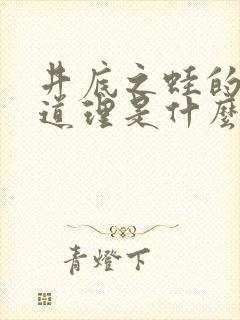 井底之蛙的
道理是什麼
青燈下